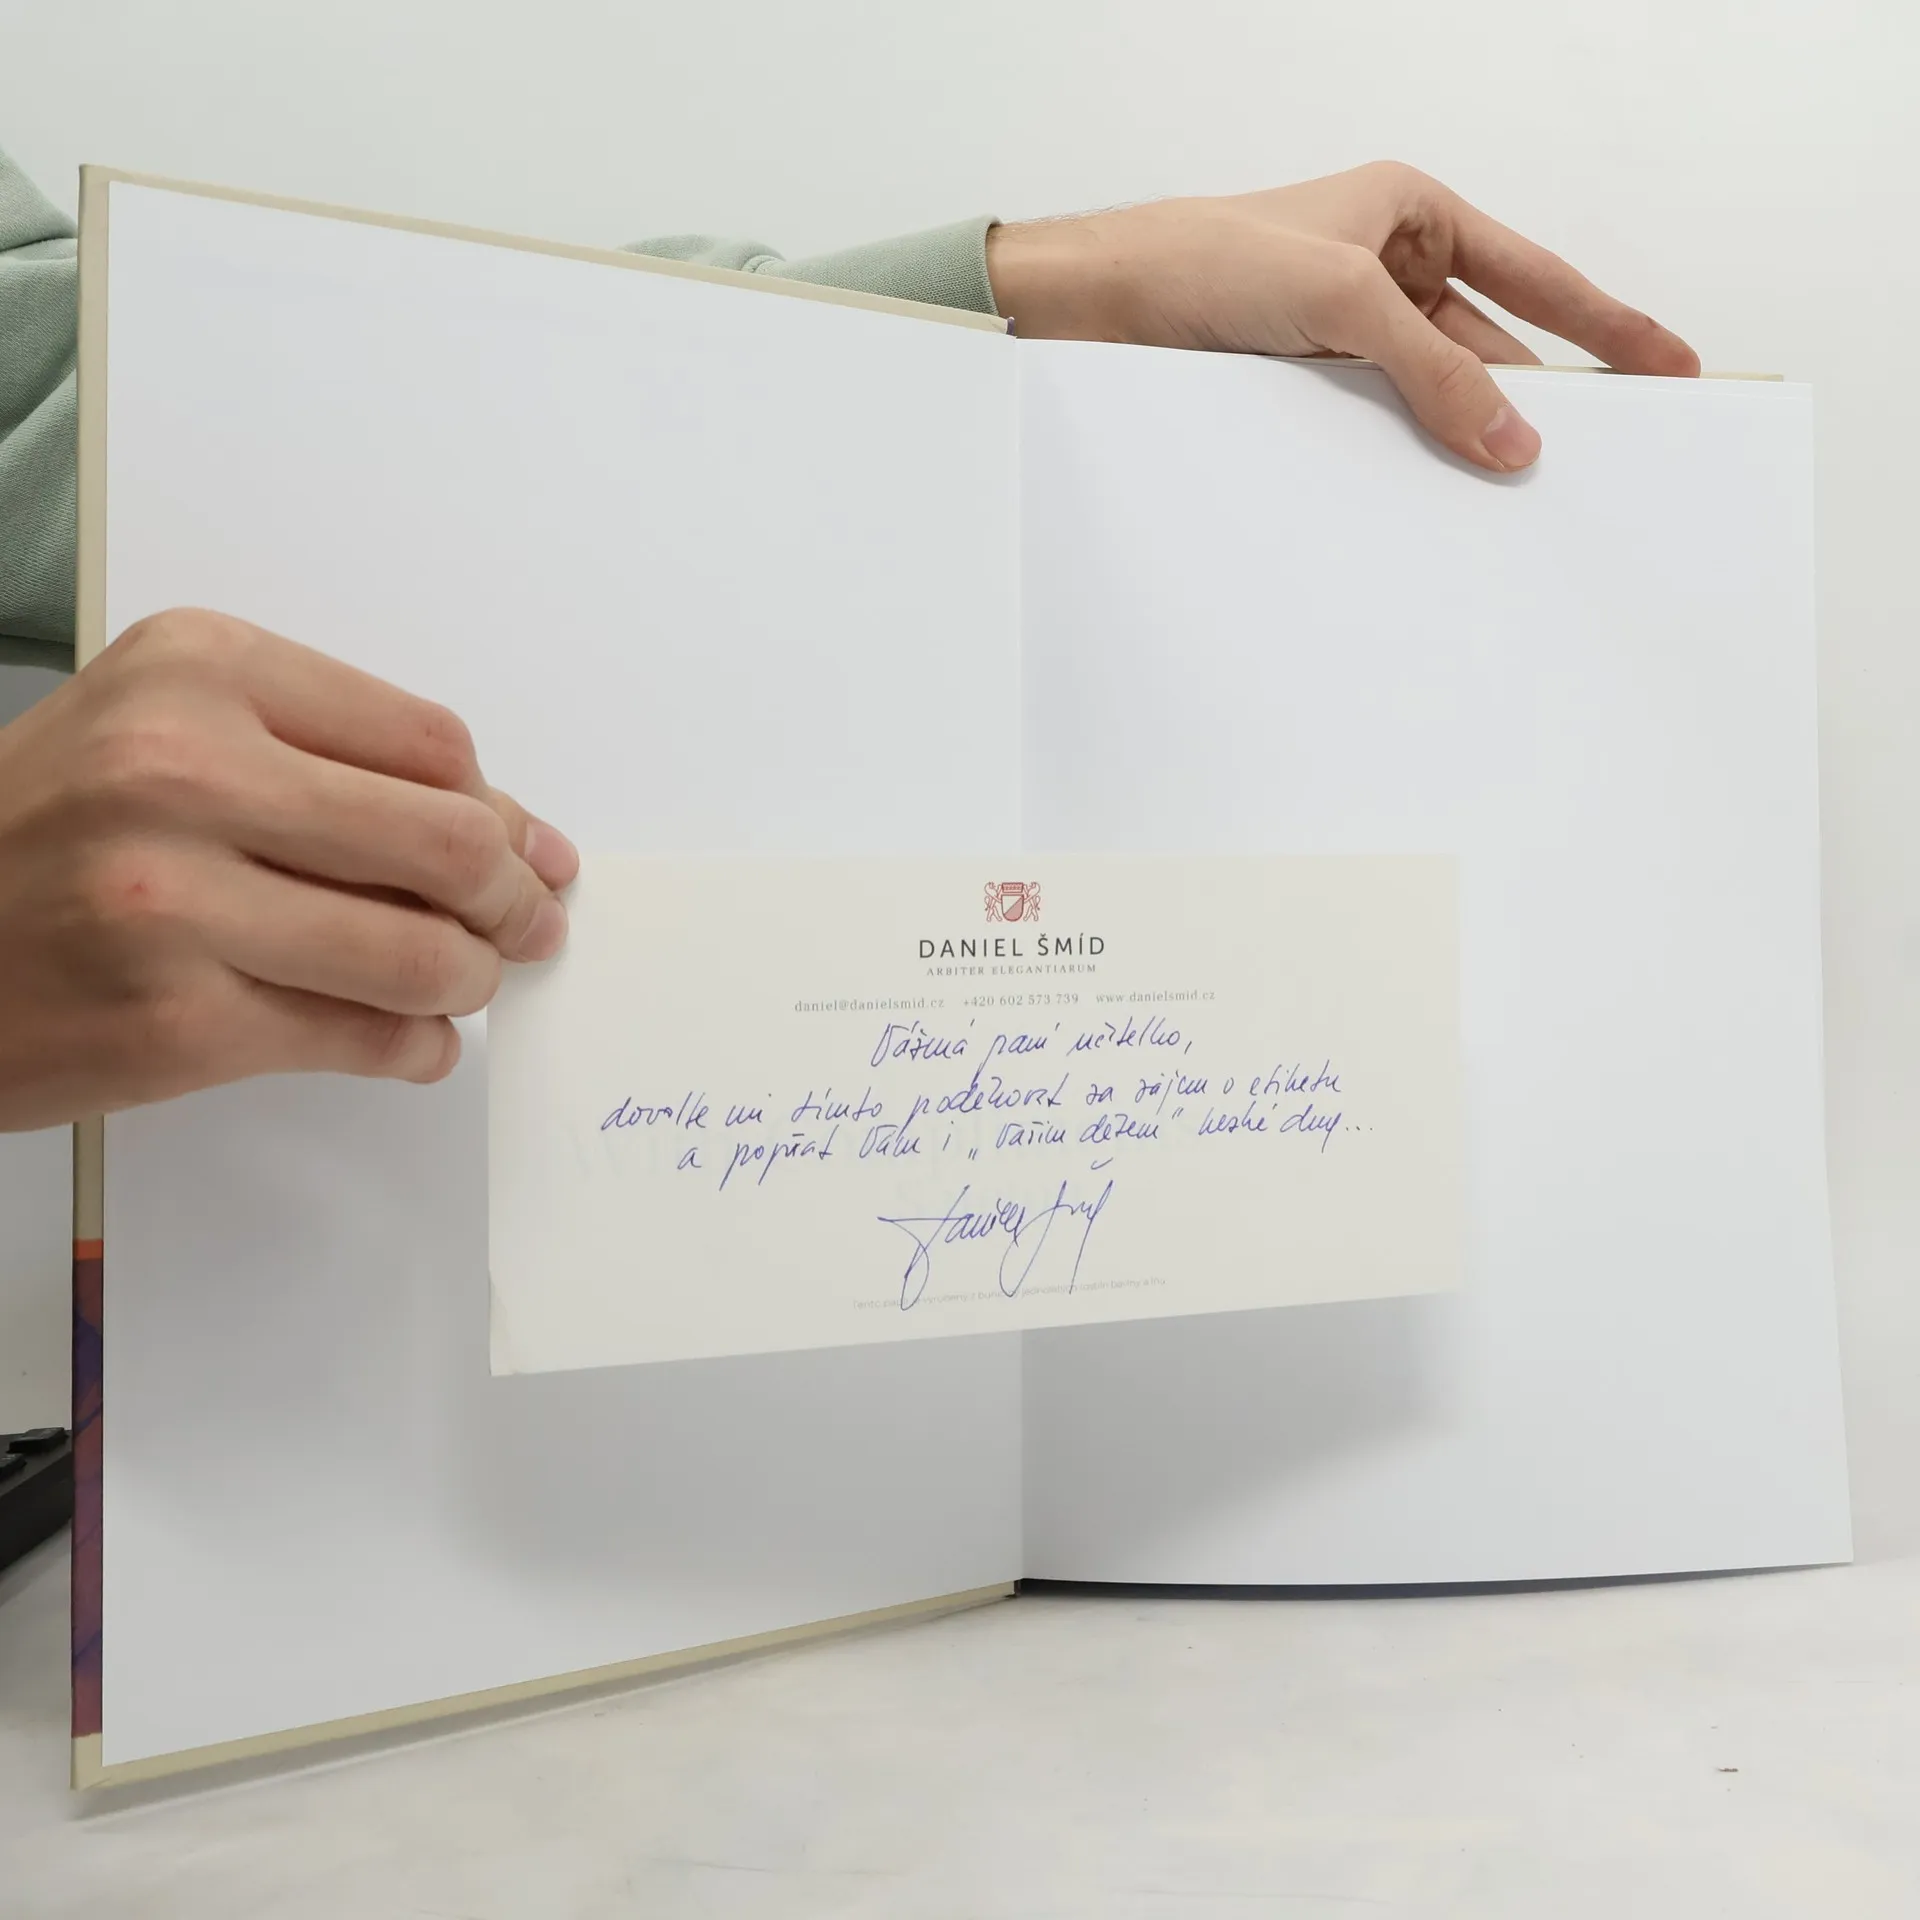 DANIEL ŠMÍD
ARBITER ELEGANTIARUM
daniel@danielsmid.cz +420 602 573 739 www.danielsmid.cz
Vážená paní učitelko,
dovolte mi tímto poděkovat za zájem o etiketu
a popřát Vám i „Vašim dětem" hezké dny...
Daniel Šmíd